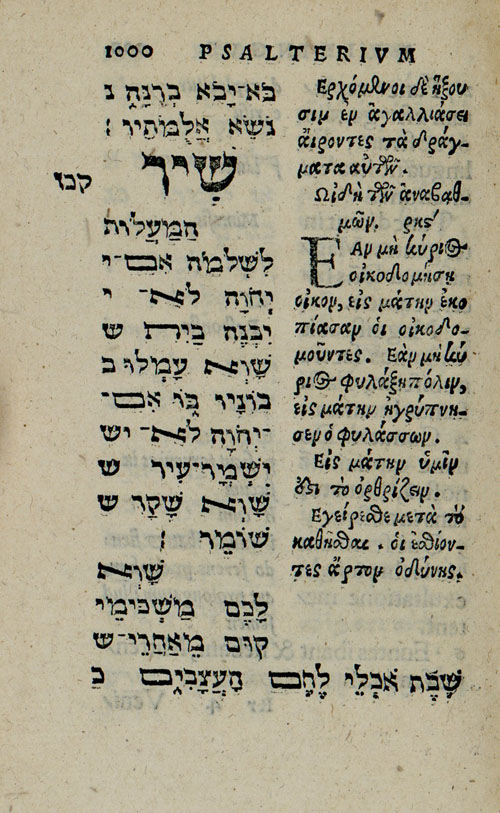 1000 PSALTERIVM
בֹּא־יָבֹא בְרִנָּה נ
נֹשֵׂא אֲלֻמֹּתָיו׃
שִׁיר
קכז
הַמַּעֲלוֹת
לִשְׁלֹמֹה אִם־י
יְהֹוָה לֹא־ י
יִבְנֶה בַיִת ש
שָׁוְא עָמְלוּ ב
בוֹנָיו בּוֹ אִם־
־יְהֹוָה לֹא־ יש
יִשְׁמָר־עִיר ש
שָׁוְא שָׁקַד ש
שׁוֹמֵר׃
שָׁוְא
לָכֶם מַשְׁכִּימֵי
קוּם מְאַחֲרֵי־ש
שֶׁבֶת אֹכְלֵי לֶחֶם הָעֲצָבִים כ
Ερχόμενοι δὲ ἥξου
σιν ἐν ἀγαλλιάσει
ἄιροντες τὰ δράγ-
ματα αὑτῶν.
Ωιδὴ τῶν ἀναβαθ-
μῶν. ρκς'
ΕΑν μὴ κύριος
οἰκοδομήσῃ
οἶκον, εἰς μάτην ἐκο
πίασαν οἱ οἰκοδο-
μοῦντες. Εὰν μὴ κύ
ριος φυλάξῃ πόλιν,
εἰς μάτην ἠγρύπνη-
σεν ὁ φυλάσσων.
Εἰς μάτην ὑμῖν
ἐστι τὸ ὀρθρίζειν.
Εγείρεσθε μετὰ τὸ
καθῆσθαι. οἱ ἐσθίον-
τες ἄρτον ὀδύνης.